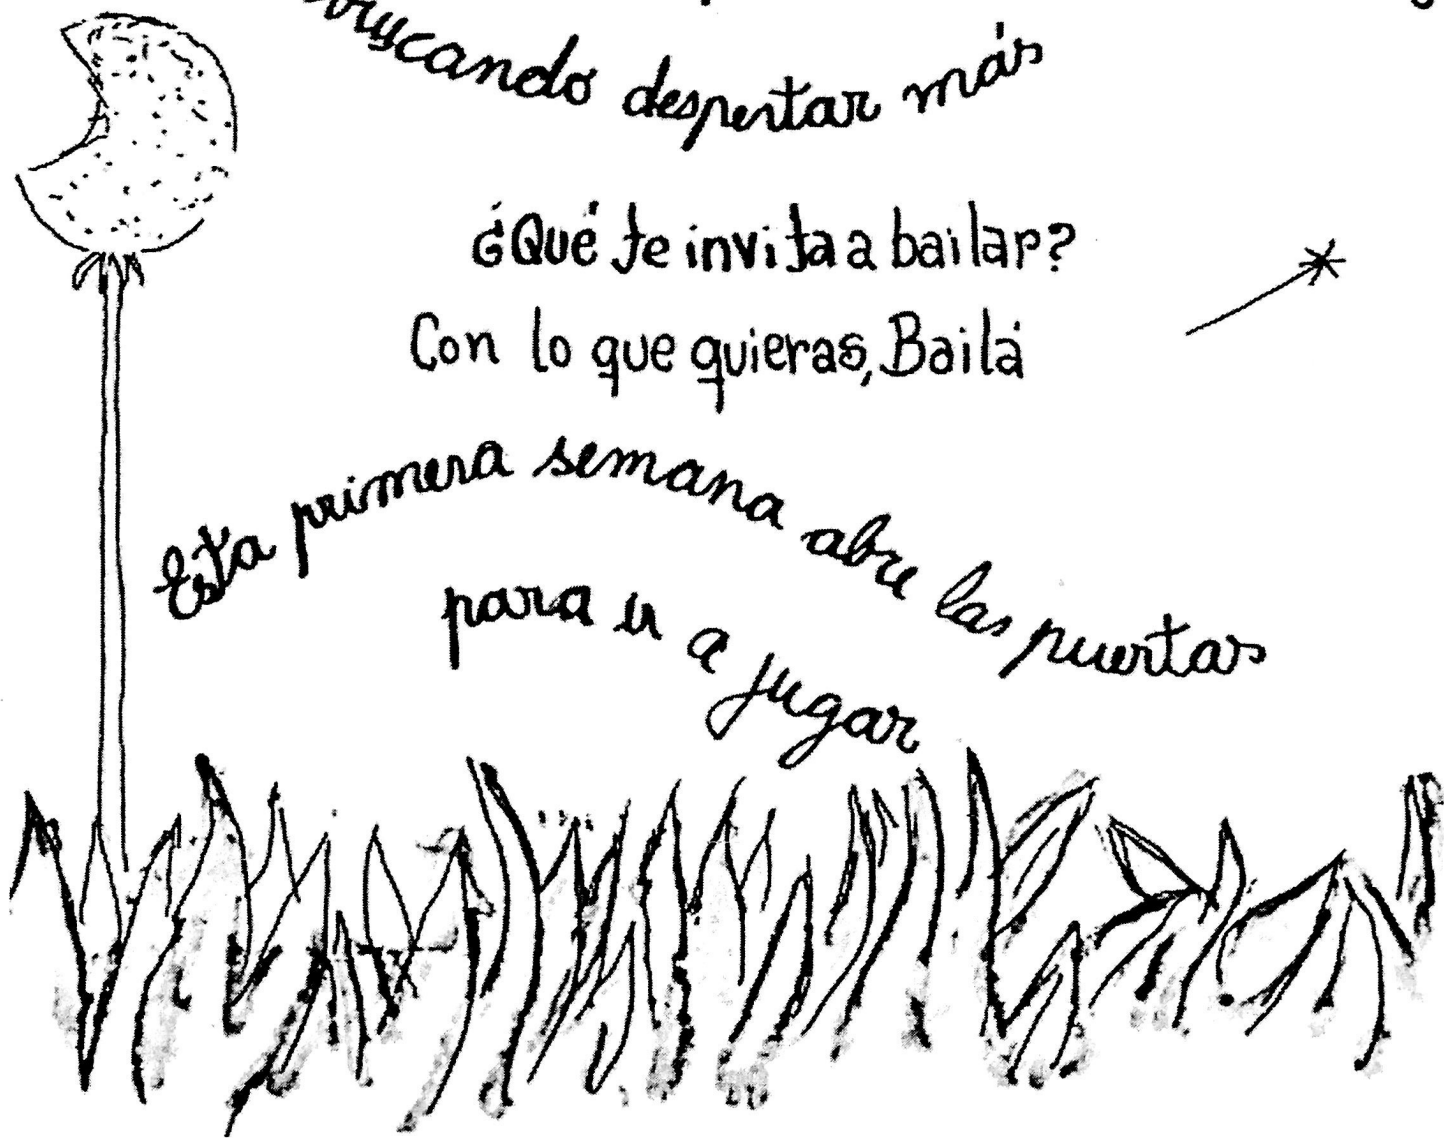 buscando despertar más
¿Qué te invita a bailar?
Con lo que quieras, Bailá
Esta primera semana abre las puertas
para ir a jugar